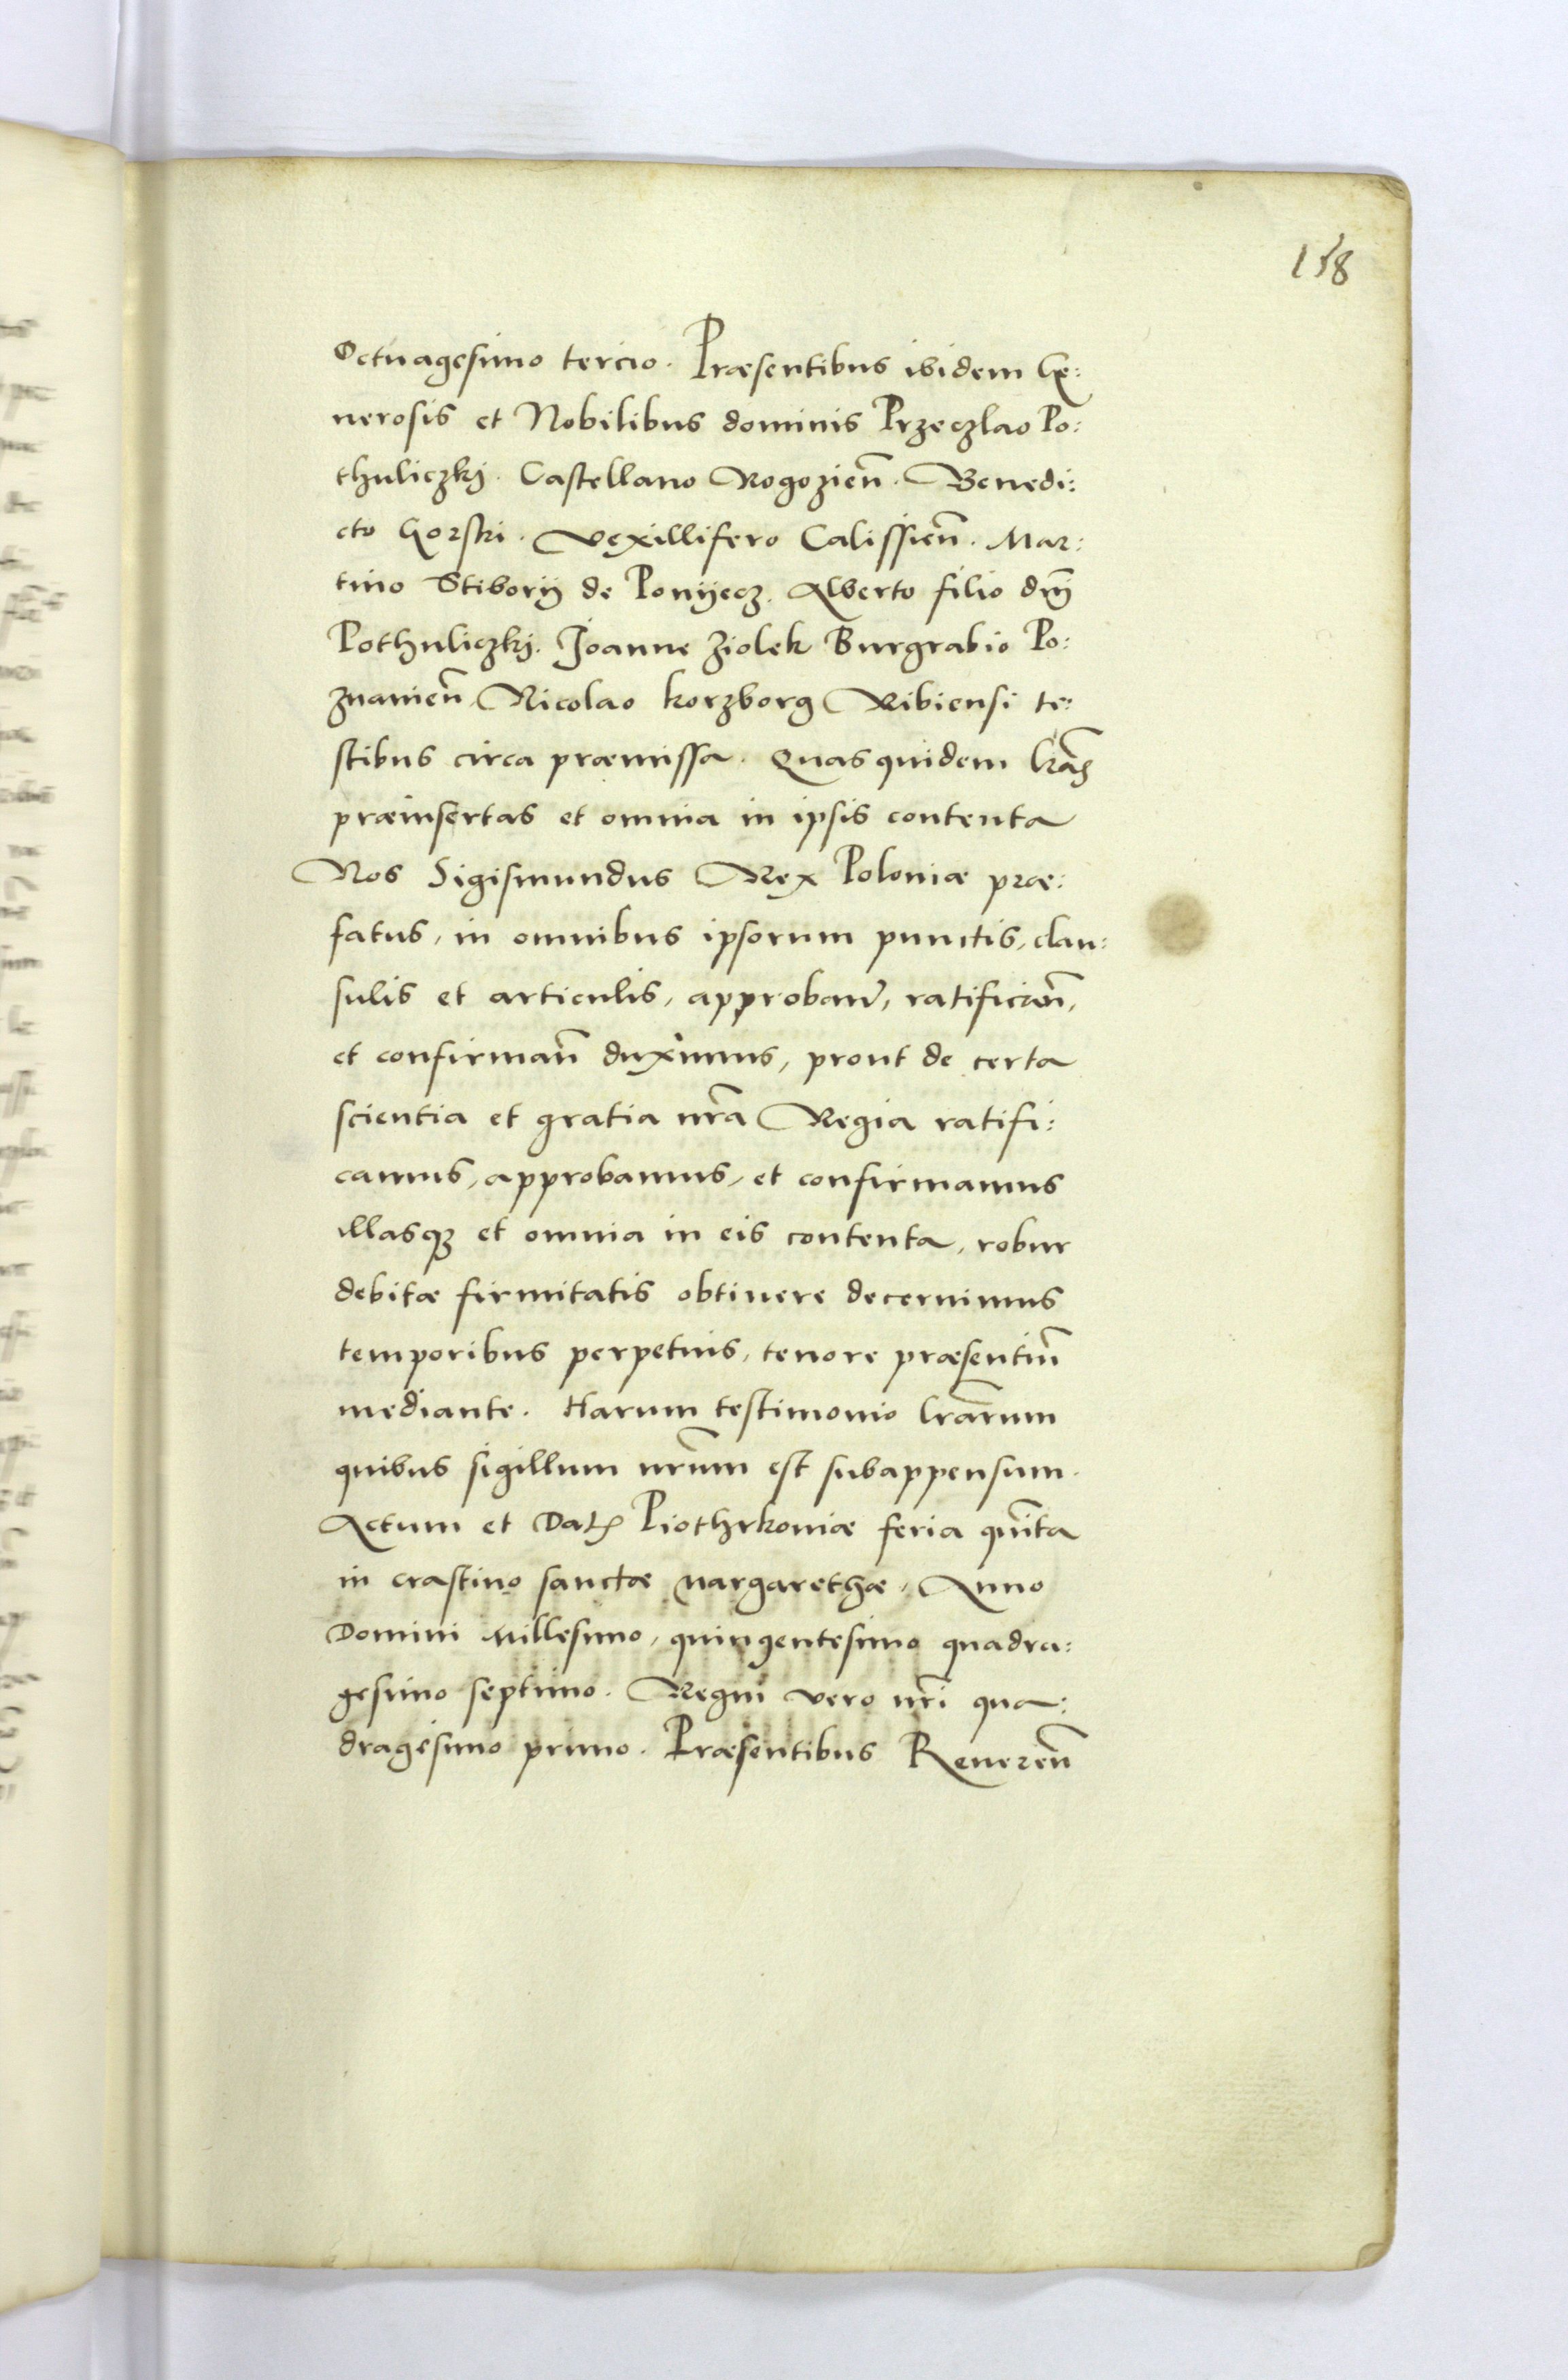 158
Octuagesimo tercio. Præsentibus ibidem Ge:
nerosis et Nobilibus dominis Przeczlao Po:
thuliczkÿ. Castellano Rogozien̄. Benedi:
cto Gorski. Vexillifero Calissien̄. Mar:
tino Stiborÿ de Ponÿecz. Alberto filio dnī
PothuliczkÏ. Joanne Ziolek Burgrabio Po:
znanien̄. Nicolao korzborg Ribiensi te:
stibus circa præmissa. Quas quidem lrās
præinsertas et omnia in ipsis contenta
Nos Sigismundus Rex Poloniæ præ:
fatus, in omnibus ipsorum punctis, clau:
sulis et articulis, approban̄, ratifican̄,
et confirman̄ duximus, prout de certa
scientia et gratia nrā Regia ratifi:
camus, approbamus, et confirmamus
illasq3 et omnia in eis contenta, robur
debitæ firmitatis obtinere decernimus
temporibus perpetuis, tenore præsentiū
mediante. Harum testimonio lrārum
quibus sigillum nrūm est subappensum.
Actum et Dat Piothrkoniæ feria quīta
in crastino sanctæ Margarethæ, Anno
Domini Millesimo, quingentesimo quadra:
gesimo septimo. Regni vero nrī qua:
dragesimo primo. Præsentibus Reueren̄